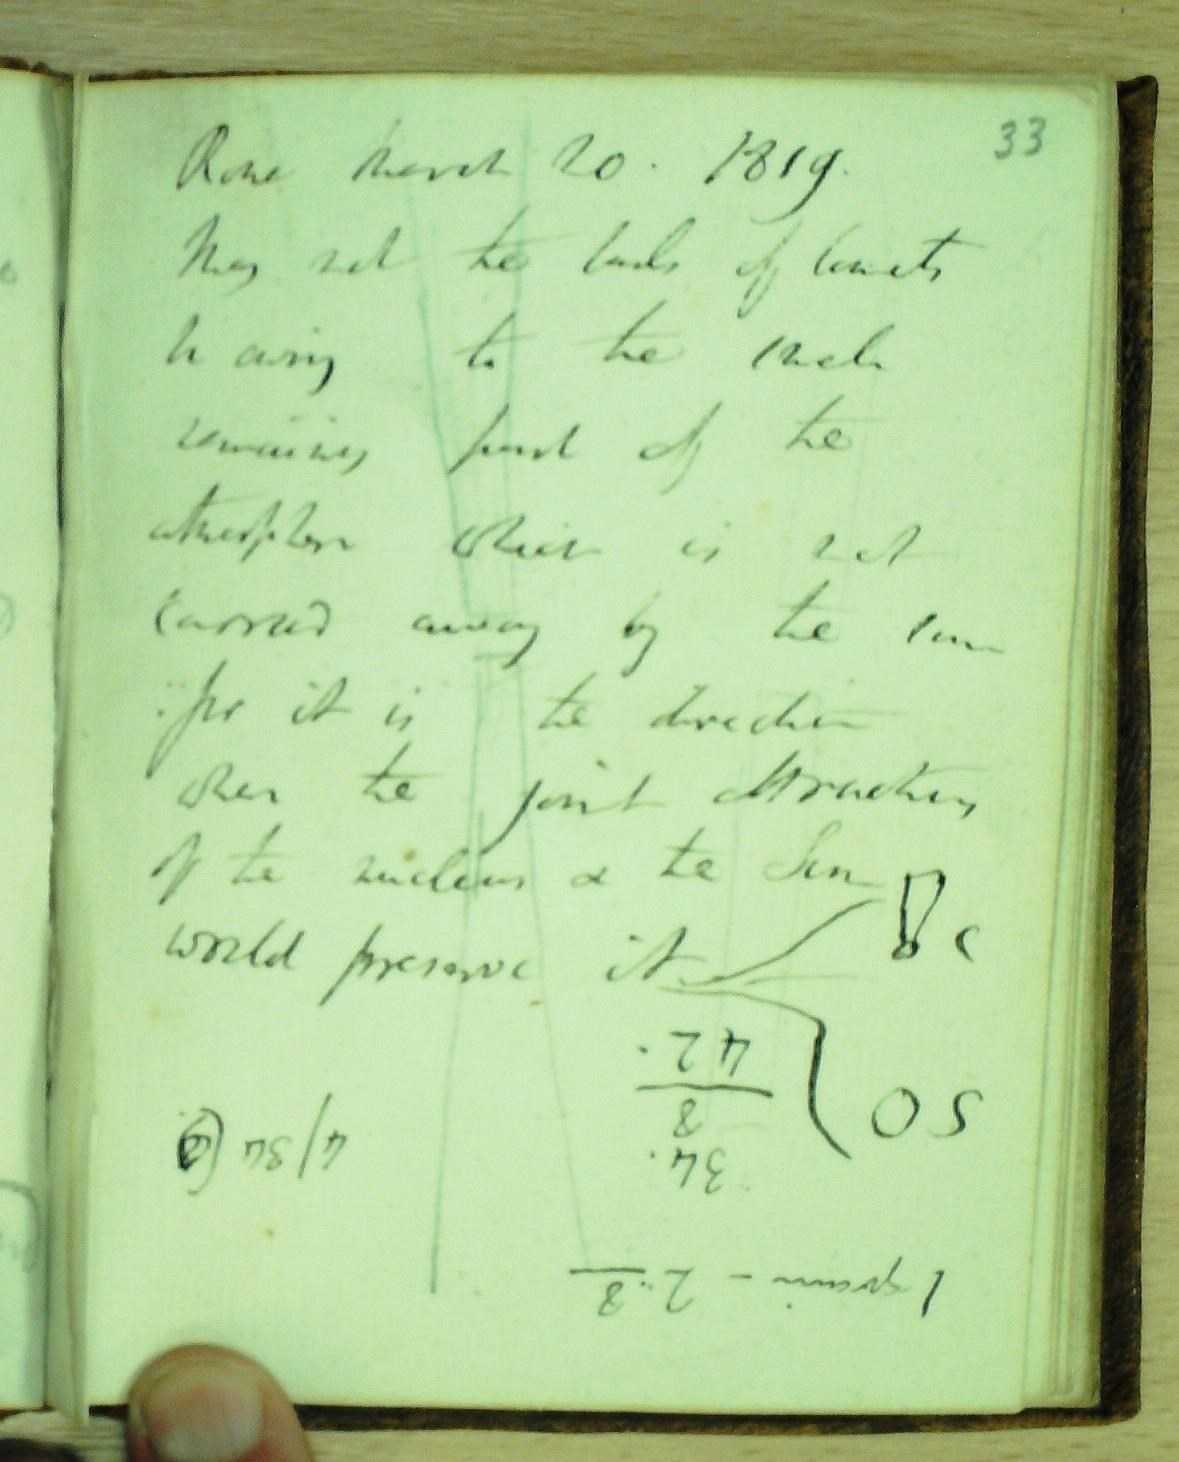 33
Rome March 20. 1819.
May not the tails of Comets
be owing to the
remaining part of the
atmosphere which is not
carried away by the sun
∵ for it is the direction
when the joint attractions
of the nucleus & the Sun
would preserve it
C
42.
8
34.
S
4/34(
1 grain - 2..8